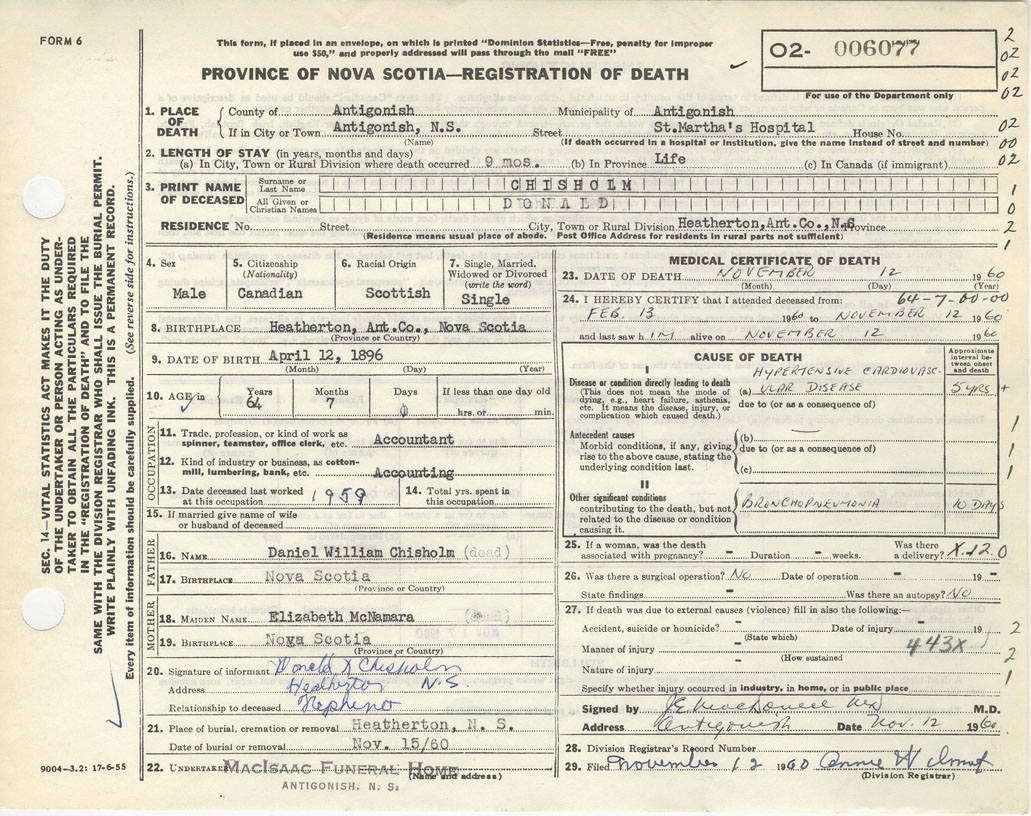 FORM 6
This form, if placed in an envelope, on which is printed "Dominion Statistics—Free, penalty for improper
use $50," and properly addressed will pass through the mail "FREE"
PROVINCE OF NOVA SCOTIA—REGISTRATION OF DEATH
02- 006077
For use of the Department only
2
02
02
02
1. PLACE OF DEATH { County of Antigonish Municipality of Antigonish
If in City or Town Antigonish, N.S. Street St.Martha's Hospital House No. 02
(Name) (If death occurred in a hospital or institution, give the name instead of street and number) 00
2. LENGTH OF STAY (in years, months and days)
(a) In City, Town or Rural Division where death occurred 9 mos. (b) In Province Life (c) In Canada (if immigrant) 02
3. PRINT NAME OF DECEASED
Surname or Last Name CHISHOLM 1
All Given or Christian Names DONALD 0
RESIDENCE No. Street City, Town or Rural Division Heatherton,Ant.Co.,N.S Province 2
(Residence means usual place of abode. Post Office Address for residents in rural parts not sufficient) 1
4. Sex
Male
5. Citizenship
(Nationality)
Canadian
6. Racial Origin
Scottish
7. Single, Married,
Widowed or Divorced
(write the word)
Single
8. BIRTHPLACE Heatherton, Ant.Co., Nova Scotia
(Province or Country)
9. DATE OF BIRTH April 12, 1896
(Month) (Day) (Year)
10. AGE in Years 64 Months 7 Days 0 If less than one day old
hrs. or min.
OCCUPATION
11. Trade, profession, or kind of work as
spinner, teamster, office clerk, etc. Accountant
12. Kind of industry or business, as cotton-
mill, lumbering, bank, etc. Accounting
13. Date deceased last worked
at this occupation 1959
14. Total yrs. spent in
this occupation
15. If married give name of wife
or husband of deceased
FATHER
16. NAME Daniel William Chisholm (dead)
17. BIRTHPLACE Nova Scotia
(Province or Country)
MOTHER
18. MAIDEN NAME Elizabeth McNamara
19. BIRTHPLACE Nova Scotia
(Province or Country)
20. Signature of informant Donald D Chisholm
Address Heatherton N.S
Relationship to deceased Nephew
21. Place of burial, cremation or removal Heatherton, N. S.
Date of burial or removal Nov. 15/60
22. UNDERTAKER MACISAAC FUNERAL HOME
(Name and address)
ANTIGONISH, N. S.
MEDICAL CERTIFICATE OF DEATH
23. DATE OF DEATH NOVEMBER 12 1960
(Month) (Day) (Year)
24. I HEREBY CERTIFY that I attended deceased from: 64-7-00-00
FEB. 13 1960 to NOVEMBER 12 1960
and last saw h IM alive on NOVEMBER 12 1960
CAUSE OF DEATH
Approximate
interval be-
tween onset
and death
I
Disease or condition directly leading to death
(This does not mean the mode of
dying, e.g., heart failure, asthenia,
etc. It means the disease, injury, or
complication which caused death.)
HYPERTENSIVE CARDIOVASC-
(a) ULAR DISEASE 5 yrs +
due to (or as a consequence of)
Antecedent causes
Morbid conditions, if any, giving
rise to the above cause, stating the
underlying condition last.
(b) 1
due to (or as a consequence of) 1
(c) 1
II
Other significant conditions
contributing to the death, but not
related to the disease or condition
causing it.
BRONCHOPNEUMONIA 10 DAYS
25. If a woman, was the death
associated with pregnancy? - Duration - weeks. Was there
a delivery? X.12.0
26. Was there a surgical operation? NO Date of operation - 19 -
State findings - Was there an autopsy? NO
27. If death was due to external causes (violence) fill in also the following:—
Accident, suicide or homicide? - Date of injury - 19 2
(State which)
Manner of injury - 443X 2
(How sustained
Nature of injury - 1
Specify whether injury occurred in industry, in home, or in public place
Signed by M.D.
Address Antigonish Date Nov. 12 1960
28. Division Registrar's Record Number
29. Filed November 12 1960 Annie
(Division Registrar)
SEC. 14—VITAL STATISTICS ACT MAKES IT THE DUTY
OF THE UNDERTAKER OR PERSON ACTING AS UNDER-
TAKER TO OBTAIN ALL THE PARTICULARS REQUIRED
IN THE "REGISTRATION OF DEATH" AND TO FILE THE
SAME WITH THE DIVISION REGISTRAR WHO SHALL ISSUE THE BURIAL PERMIT.
WRITE PLAINLY WITH UNFADING INK. THIS IS A PERMANENT RECORD.
Every item of information should be carefully supplied. (See reverse side for instructions.)
9004–3.2: 17-6-55